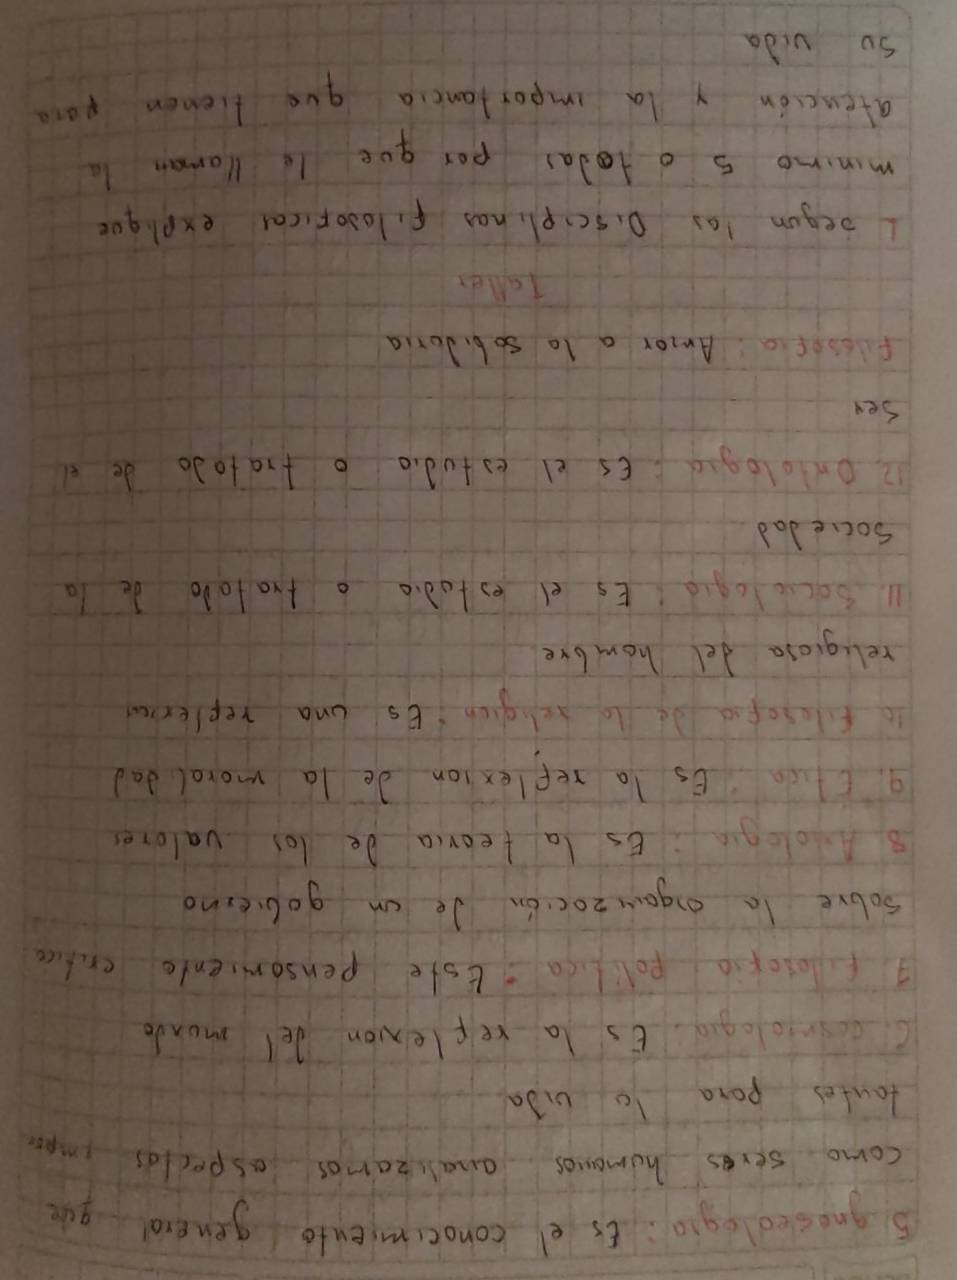 5 gnoseologia: Es el conocimiento general que
como seres humanos analizamos aspectos impor
tantes para lo vida
6. cosmologia. Es la reflexion del mundo
7 filosofia politica: Este pensamiento critico
sobre la organización de un gobierno
8 Axiologia: Es la teoria de los valores
9. Etica: Es la reflexion de la moralidad
10 filosofia de la religion: Es una reflexion
religiosa del hombre
11. Sociologia: Es el estudio o tratado de la
Sociedad
12. Ontologia: Es el estudio o tratado de el
Ser
Filosofia: Amor a la sabiduria
Taller
1. segun las Disciplinas filosoficas explique
minimo 5 o todas por que le llaman la
atención y la importancia que tienen para
su vida